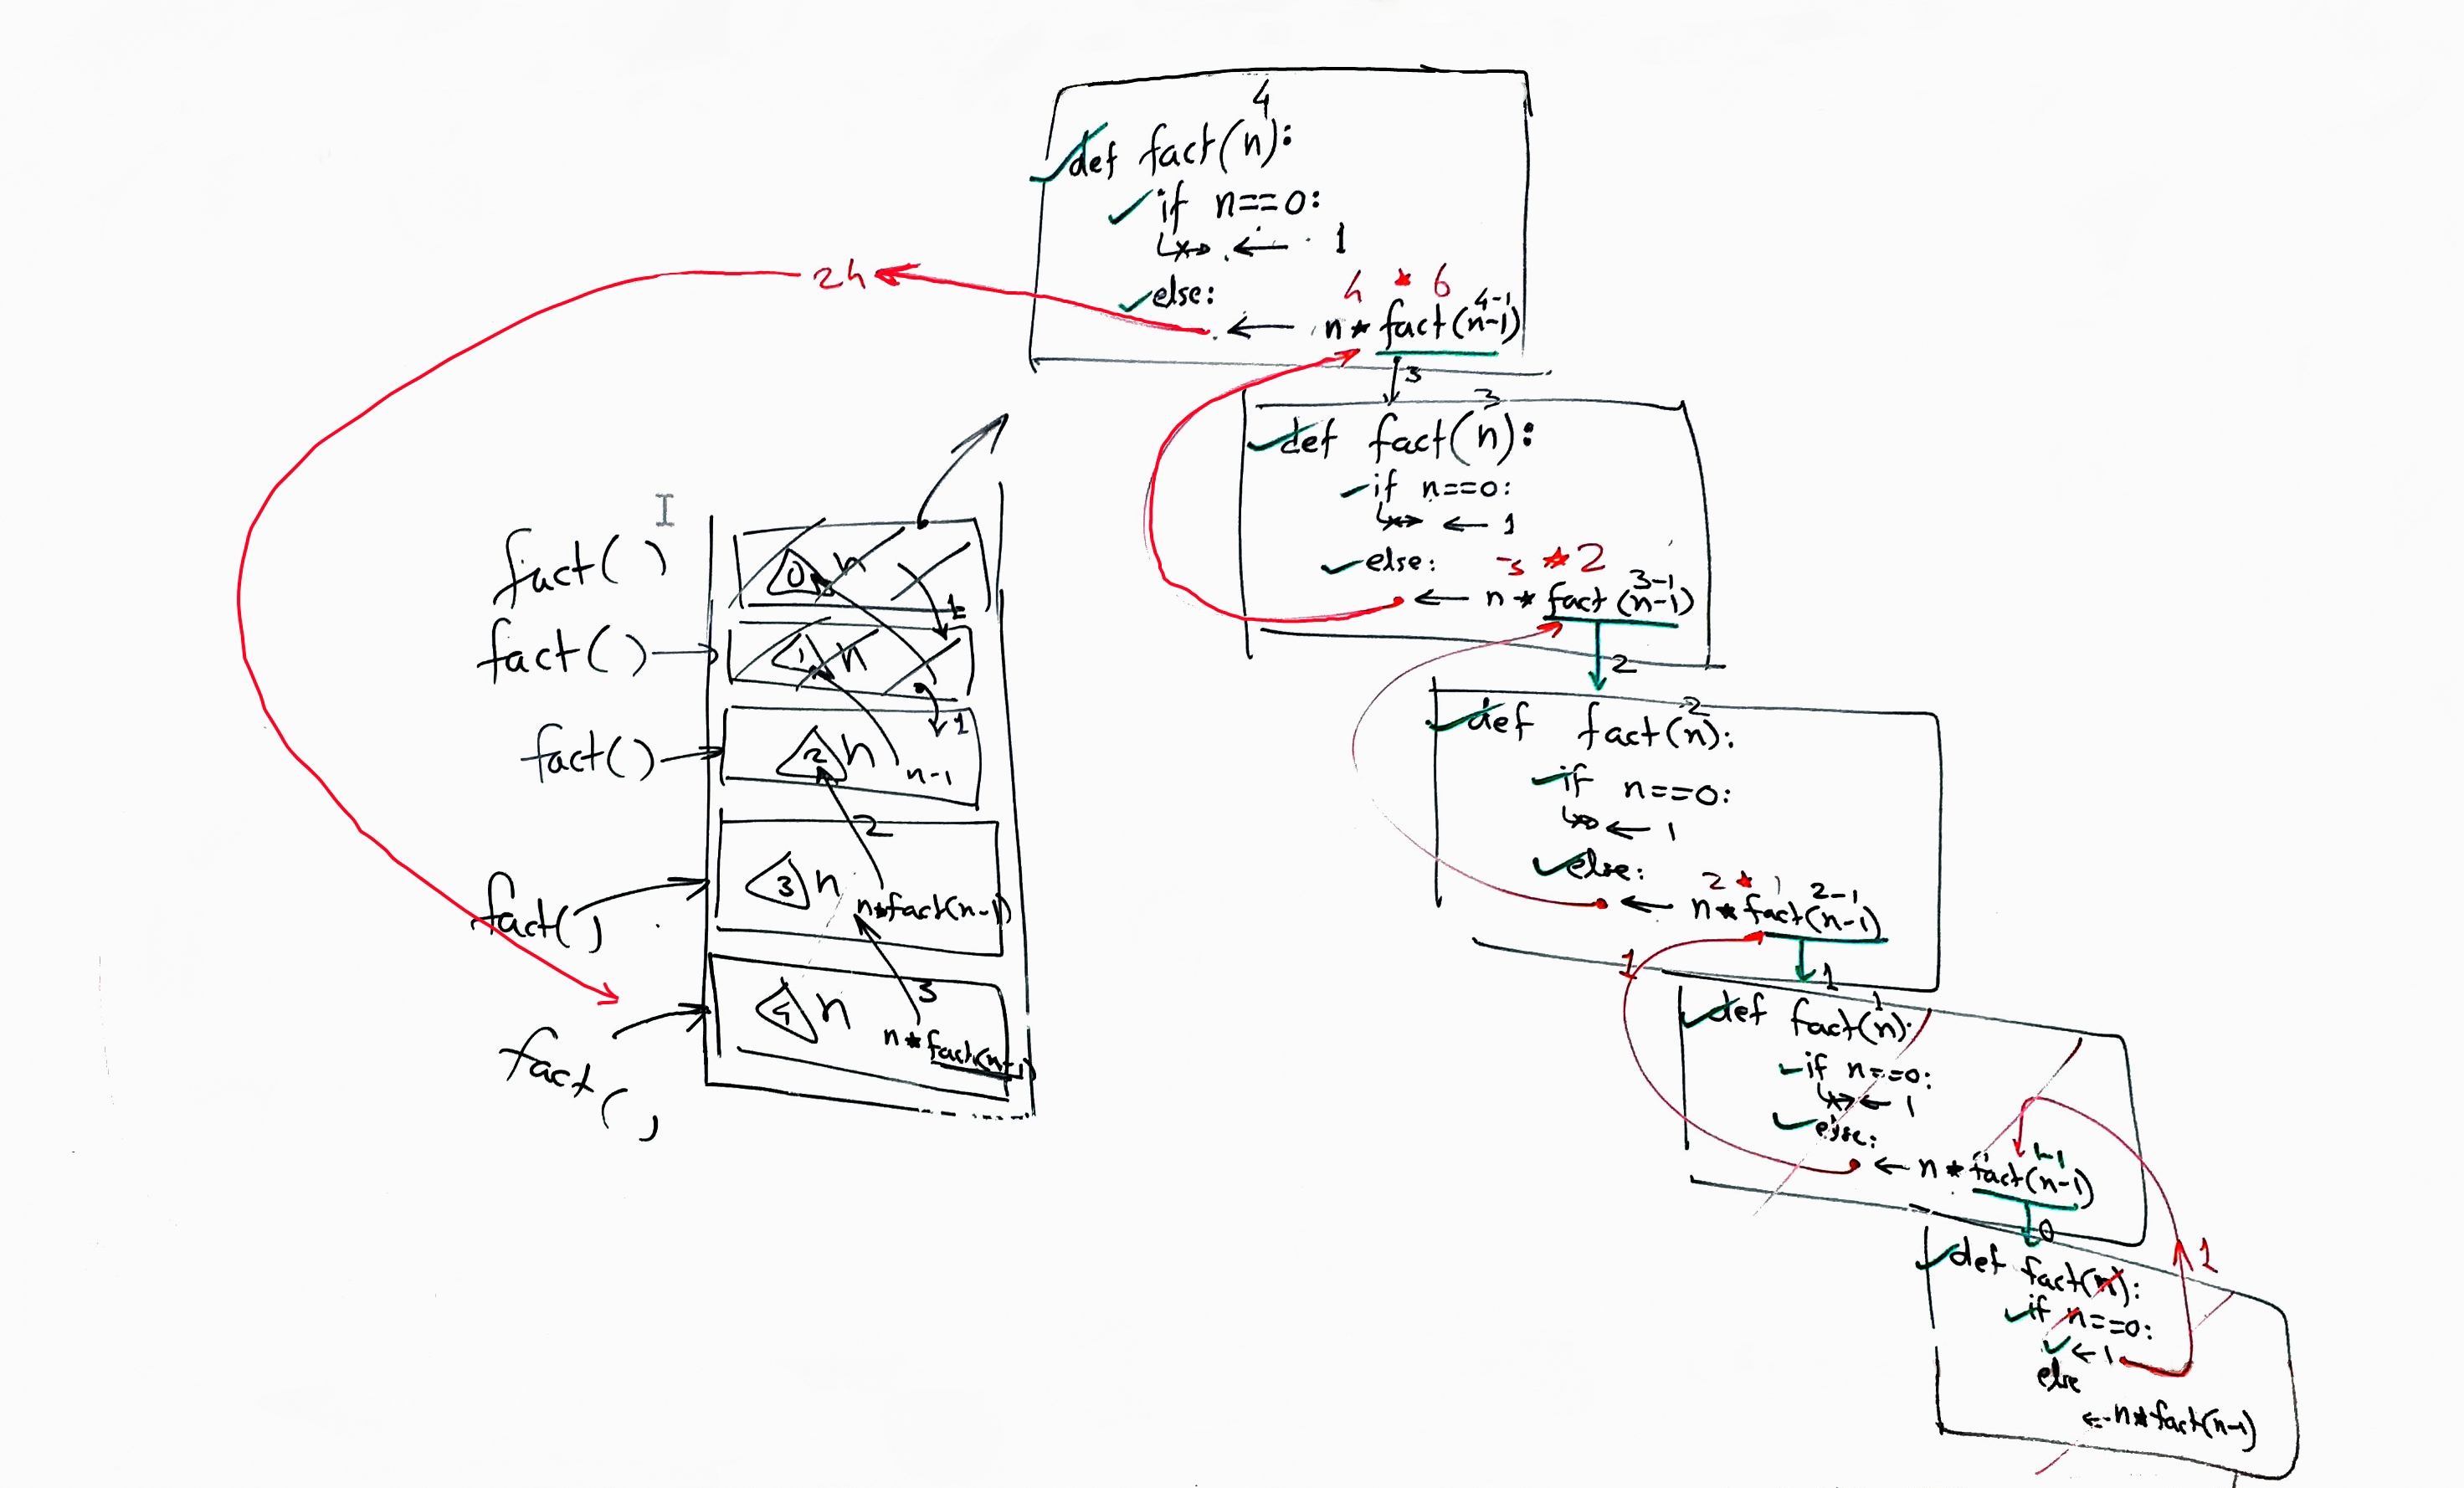 4
def fact(n):
if n==0:
← 1
else:
4 * 6
4-1
← n * fact(n-1)
24
3
3
def fact(n):
if n==0:
← 1
else:
3 * 2
3-1
← n * fact(n-1)
2
2
def fact(n):
if n==0:
← 1
else:
2 * 1
2-1
← n * fact(n-1)
1
1
1
def fact(n):
if n==0:
← 1
else:
1-1
← n * fact(n-1)
0
1
def fact(n):
if n==0:
← 1
else
← n * fact(n-1)
fact( )
0 n
1
fact( )
1 n
1
fact( )
2 n
n-1
2
fact( )
3 n
n*fact(n-1)
3
fact( )
4 n
n*fact(n-1)